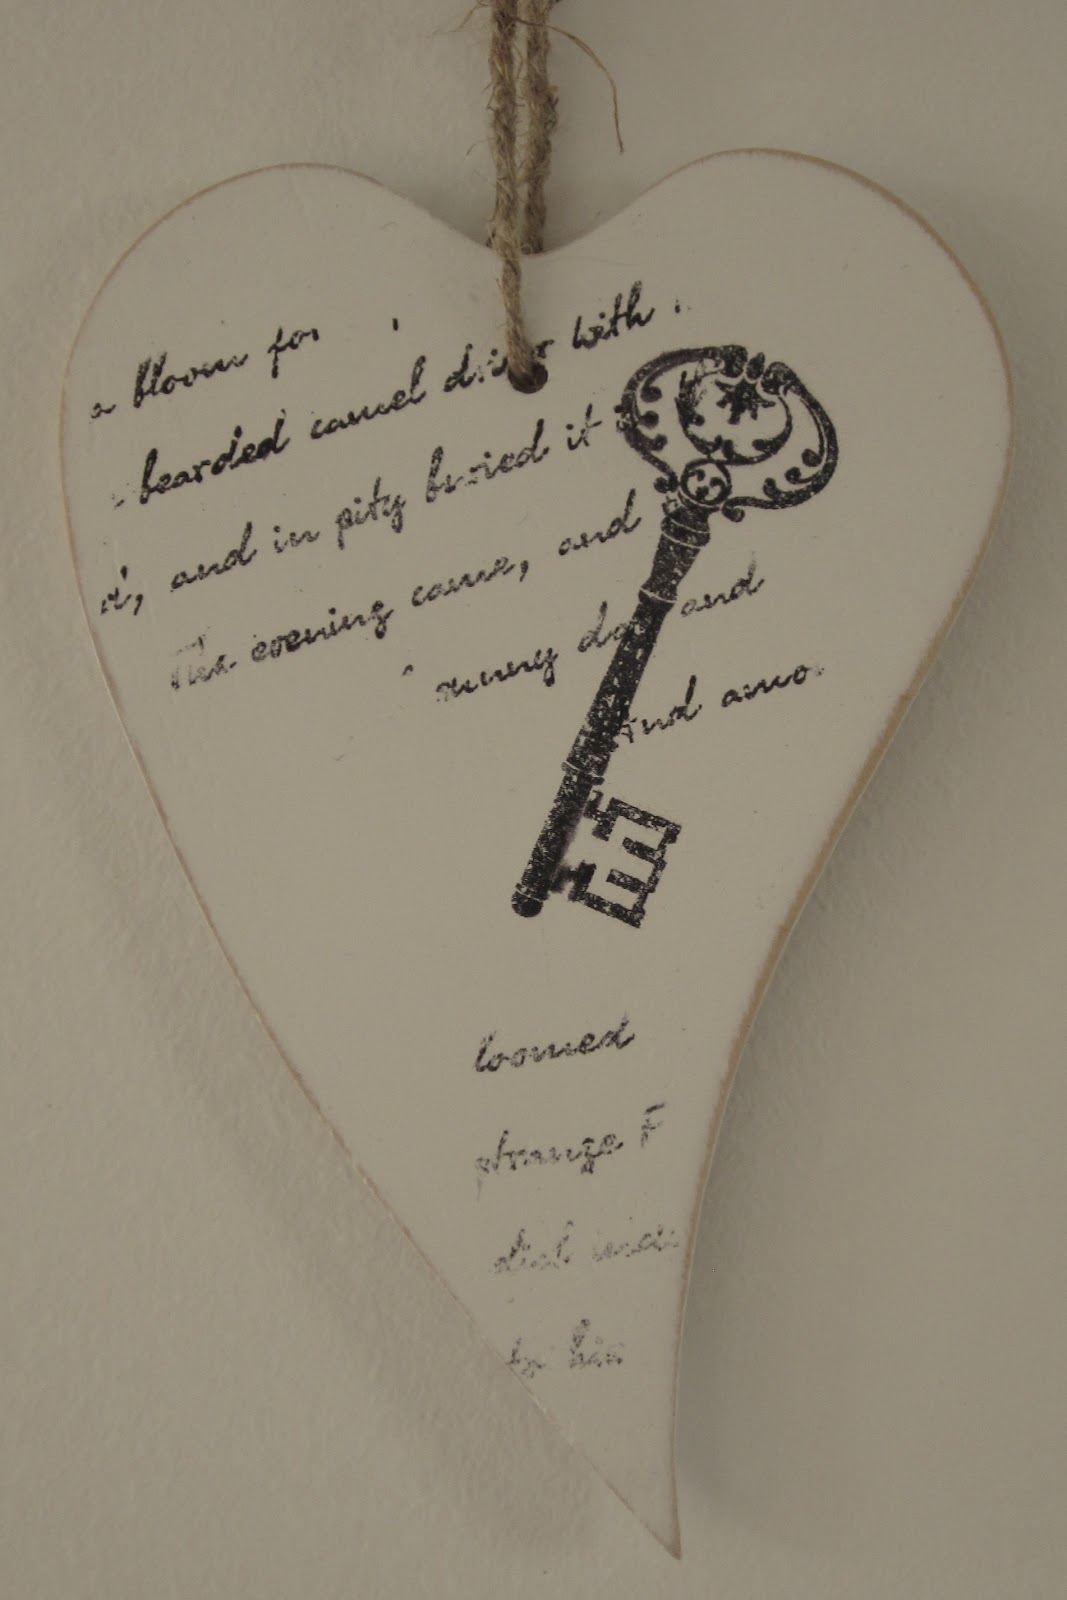 a bloom for
bearded camel driver with
d, and in pity buried it
The evening came, and
sunny day and
and amo
loomed
strange F
to his